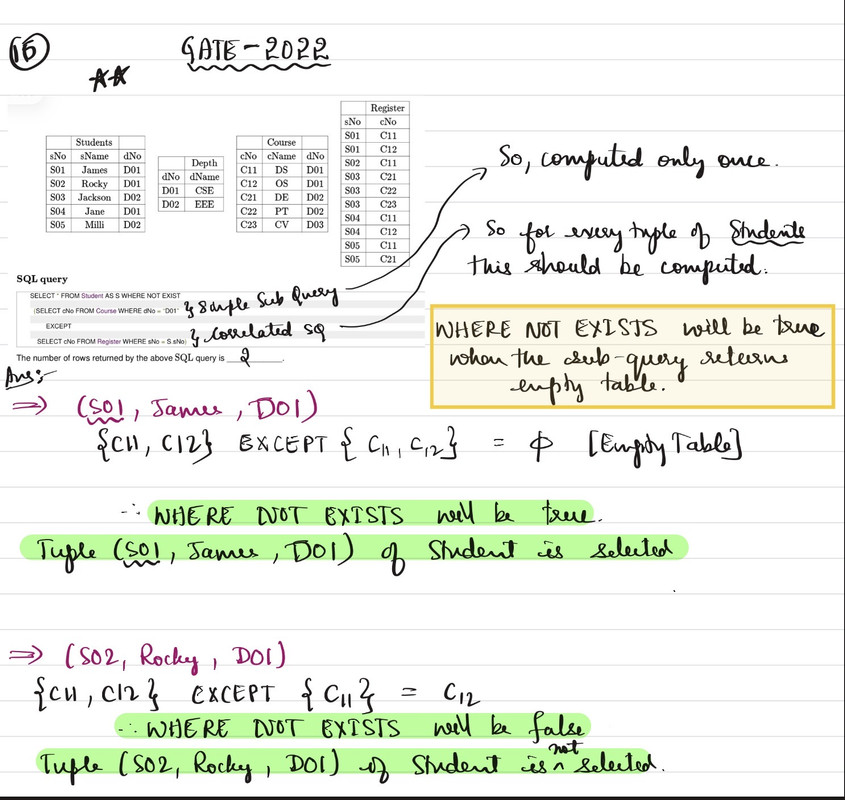 15
GATE-2022
**
Students
sNo sName dNo
S01 James D01
S02 Rocky D01
S03 Jackson D02
S04 Jane D01
S05 Milli D02
Depth
dNo dName
D01 CSE
D02 EEE
Course
cNo cName dNo
C11 DS D01
C12 OS D01
C21 DE D02
C22 PT D02
C23 CV D03
Register
sNo cNo
S01 C11
S01 C12
S02 C11
S03 C21
S03 C22
S03 C23
S04 C11
S04 C12
S05 C11
S05 C21
So, computed only once.
So for every tuple of Students
this should be computed.
SQL query
SELECT * FROM Student AS S WHERE NOT EXIST
(SELECT cNo FROM Course WHERE dNo = "D01" } Simple Sub Query
EXCEPT
SELECT cNo FROM Register WHERE sNo = S.sNo) } Correlated SQ
The number of rows returned by the above SQL query is 2.
WHERE NOT EXISTS will be true
when the sub-query returns
empty table.
Ans:-
⇒ (S01, James, D01)
{C11, C12} EXCEPT {C11, C12} = ϕ [Empty Table]
∴ WHERE NOT EXISTS will be true.
Tuple (S01, James, D01) of Student is selected
⇒ (S02, Rocky, D01)
{C11, C12} EXCEPT {C11} = C12
∴ WHERE NOT EXISTS will be false
Tuple (S02, Rocky, D01) of Student is not selected.